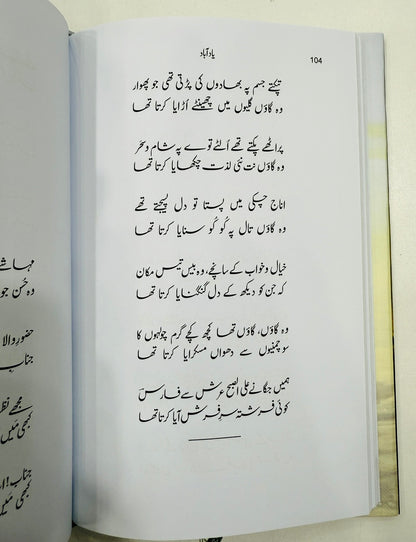 یاد آباد
104
تپتے جسم پہ بھادوں کی پڑتی تھی جو پھوار
وہ گاؤں گلیوں میں چھینٹے اُڑایا کرتا تھا
پراٹھے پکتے تھے اُلٹے توے پہ شام و سحر
وہ گاؤں نت نئی لذت چکھایا کرتا تھا
اناج چکی میں پستا تو دل پسیجتے تھے
وہ گاؤں تال پہ کُو کُو سنایا کرتا تھا
خیال و خواب کے سانچے، وہ بیس تیس مکان
کہ جن کو دیکھ کے دل گنگنایا کرتا تھا
وہ گاؤں، گاؤں تھا کچھ کچے گرم چولہوں کا
سو چمنیوں سے دھواں مسکرایا کرتا تھا
ہمیں جگانے علی الصبح عرش سے فارس
کوئی فرشتہ سرِ فرش آیا کرتا تھا
مہاشے
وہ حُسن جو
حضورِ والا
جناب
مجھے نظر
کبھی میں
جناب!
کبھی میں